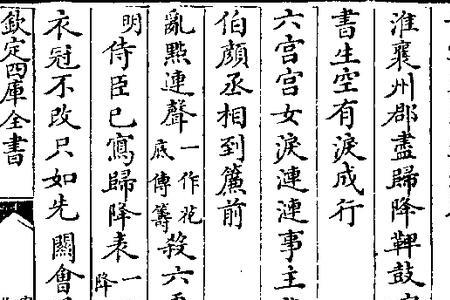 淮襄州郡盡歸降鞞鼓
書生空有淚成行
六宫宫女淚漣漣事主
伯顔丞相到簾前
亂點連聲一作花底傳籌殺六
明侍臣已寫歸降表一降
衣冠不改只如先關會
欽定四庫全書